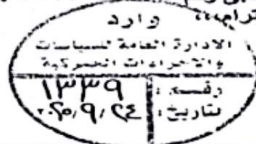 وارد
الادارة العامة لسياسات
والاجراءات الجمركية
رقم : ١٣٣٩
تاريخ : ٢٠٢٥/٩/٢٤